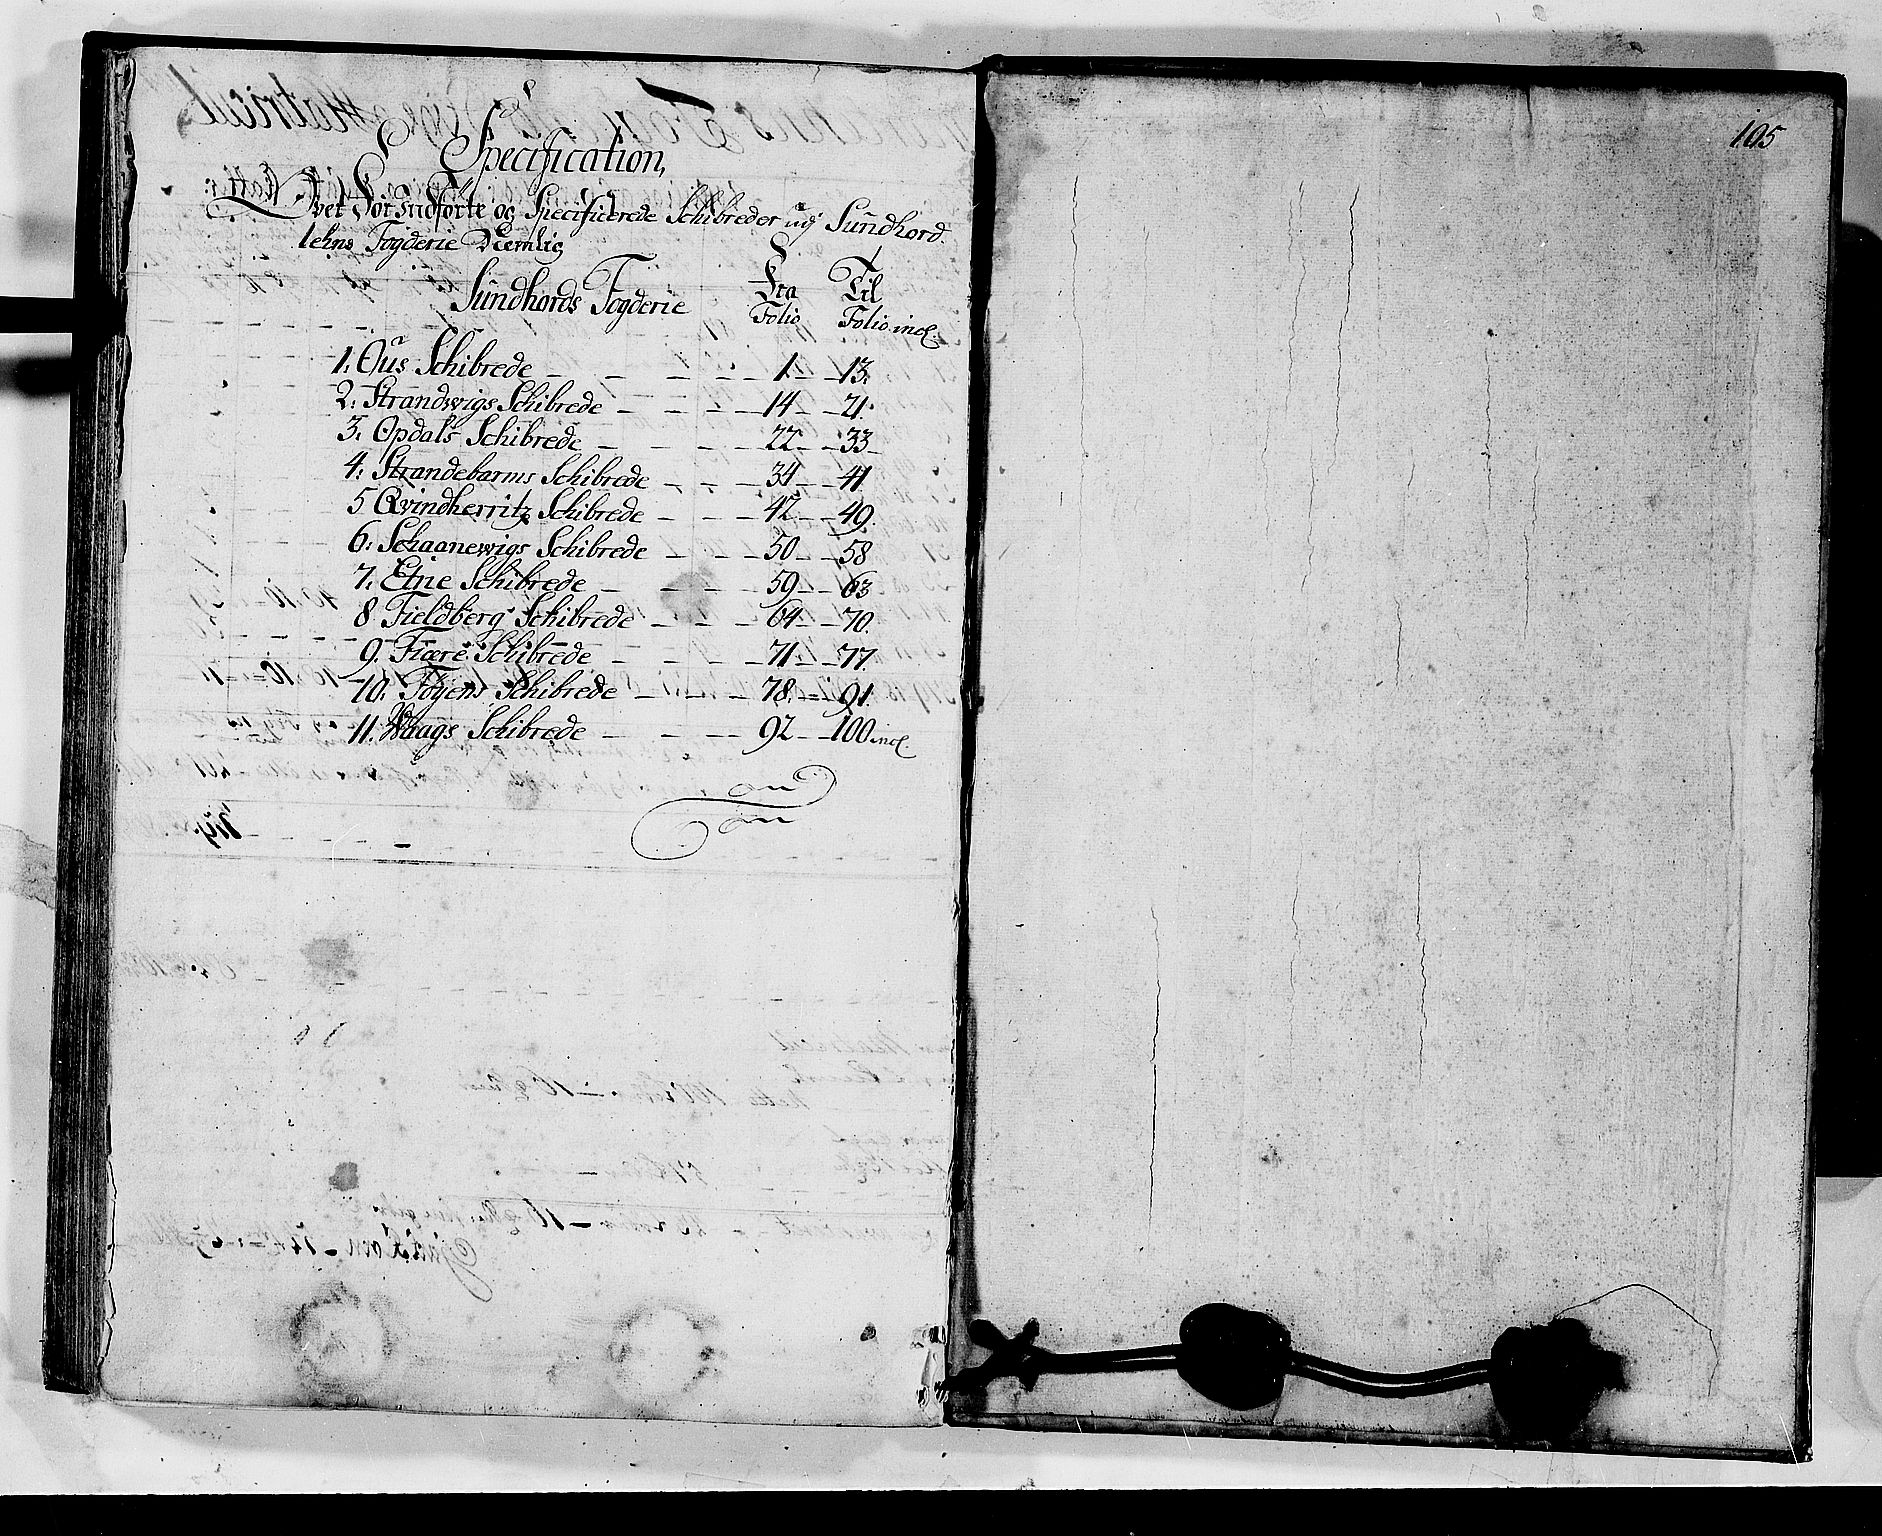 Specification,
Over For Indførte og Specificerede Schibreder udj Sundhord-
lehns Fogderie Nemlig
Sundhords Fogderie
Fra Til
Folio Folio incl.
1. Ous Schibrede 1 13.
2. Strandwigs Schibrede 14 21.
3. Opdals Schibrede 22 33
4. Strandebarms Schibrede 34 41
5 Qvindherritz Schibrede 42 49.
6. Schaanewigs Schibrede 50 58
7. Etne Schibrede 59 63
8. Fieldberg Schibrede 64 70.
9. Fiære Schibrede 71 77.
10. Føyens Schibrede 78. 91.
11. Waags Schibrede 92 100 incl.
105